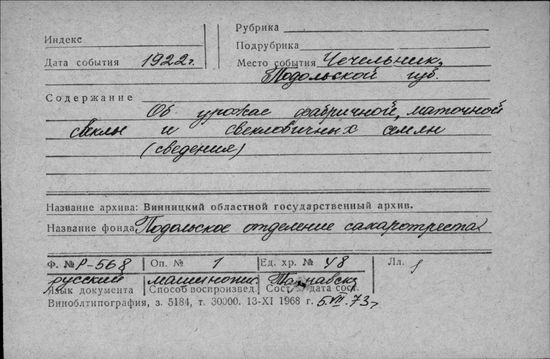 Индекс
Рубрика
Подрубрика
Дата события 1922 г.
Место события Чечельник,
Подольской губ.
Содержание Об урожае фабричной, маточной
свеклы и свекловичных семян
(сведения)
Название архива: Винницкий областной государственный архив.
Название фонда Подольское отделение сахаротреста
Ф. № Р-568 Оп. № 1 Ед. хр. № 48 Лл. 1
русский машинопис.
Язык документа Способ воспроизвед. Сост. дата сост.
Виноблтипография, з. 5184, т. 30000. 13-XI 1968 г. 5.VII.73 г